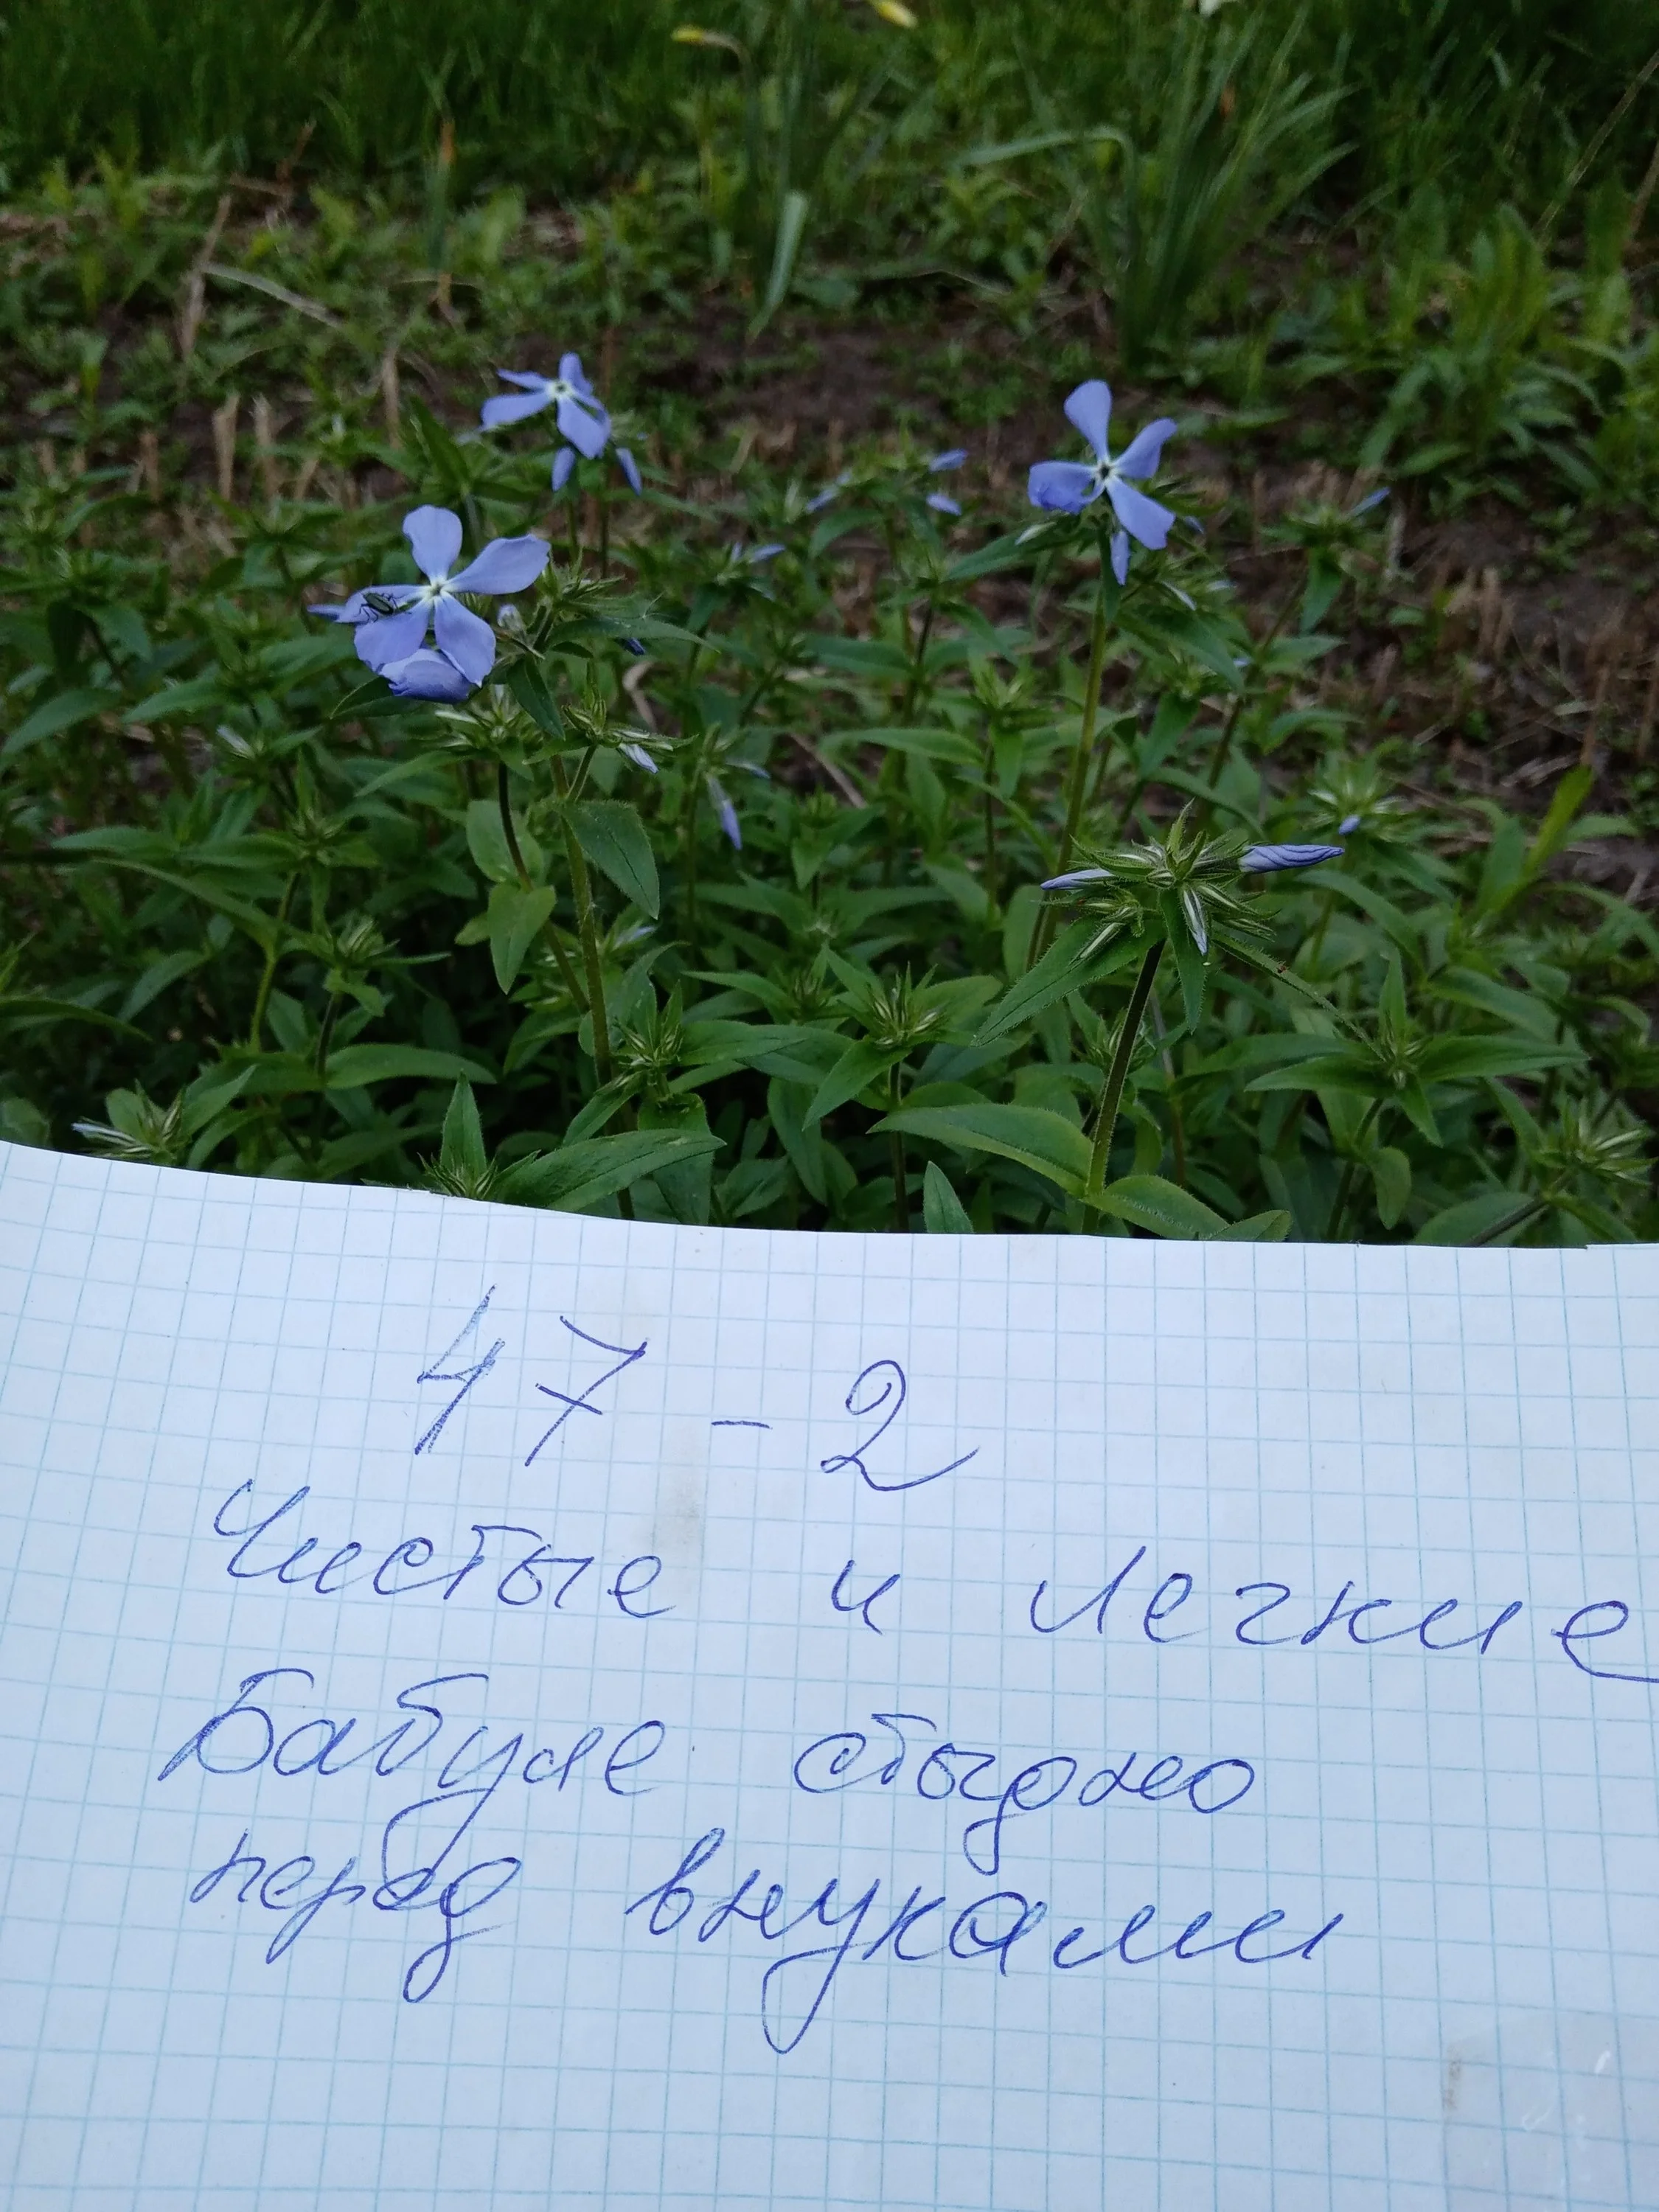 47 - 2
Чистые и легкие
Бабуле стыдно
перед внуками